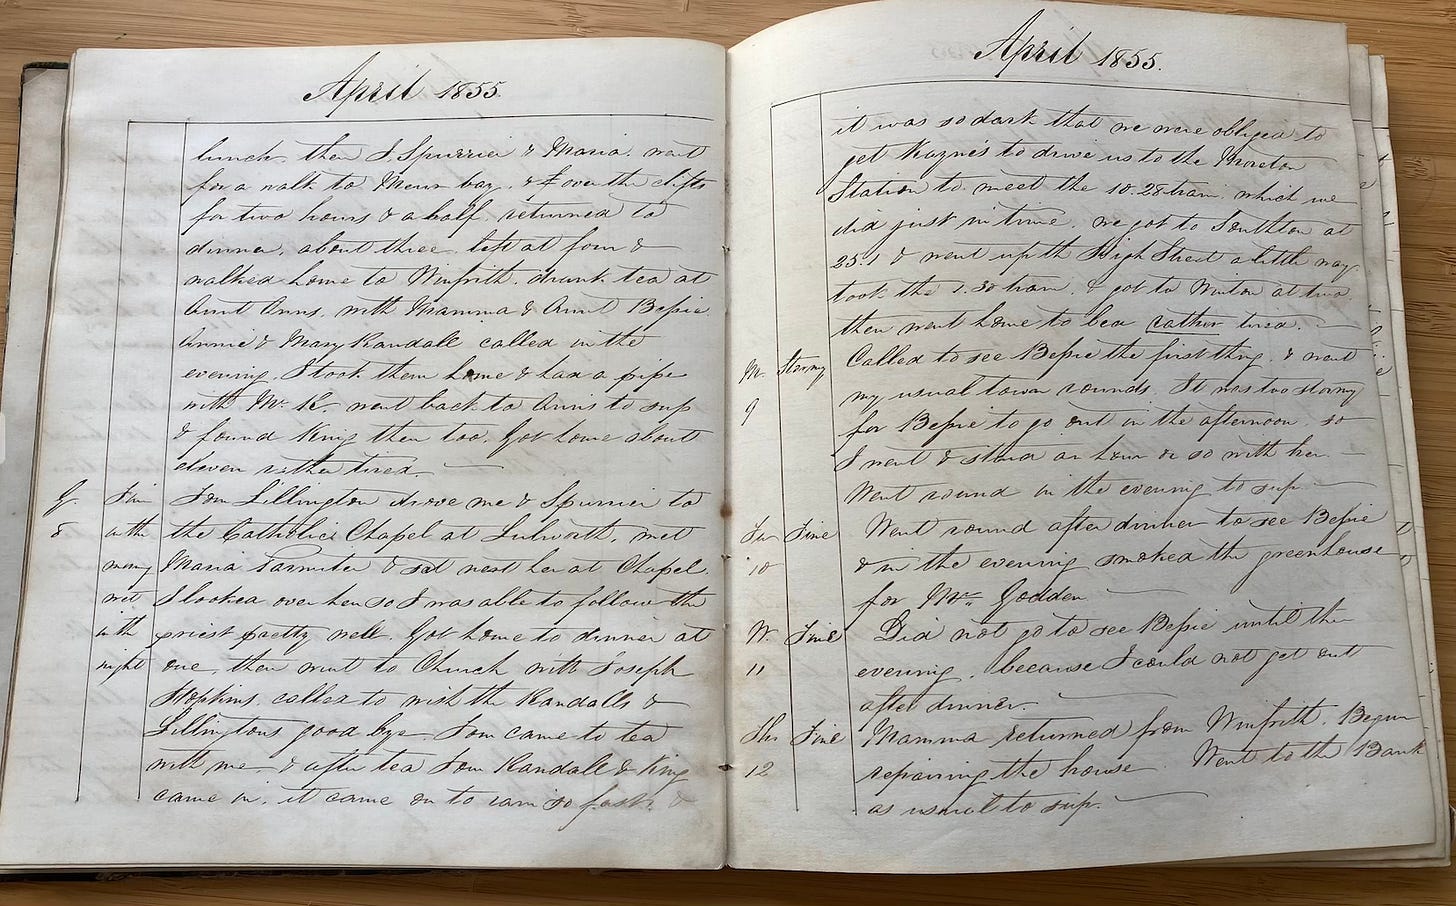 April 1855.
lunch. then J. Spurrier & Maria. went
for a walk to Mewr bay. & over the clifts
for two hours & a half. returned to
dinner. about three. left at four &
walked home to Winfrith. drunk tea at
Aunt Anns. with Mamma & Aunt Bessie.
Annie & Mary Randall called in the
evening. I took them home & had a pipe
with Mr. R. went back to Anns to sup
& found King there too. Got home about
eleven rather tired.
G. Fine Tom Lillington drove me & Spurrier to
8 in the the Catholic Chapel at Lulworth. met
morng Maria Parmiter & sat next her at Chapel.
wet I looked over her so I was able to follow the
in the priest pretty well. Got home to dinner at
night one, then went to Church with Joseph
Hopkins. called to wish the Randalls &
Lillingtons good bye. Tom came to tea
with me. & after tea Tom Randall & King
came in. it came on to rain so fast. &
April 1855.
it was so dark that we were obliged to
get to drive us to the Moreton
Station to meet the 10.28 train. which we
did just in time. we got to Southton at
25.1 & went up the High Street a little way.
took the 1.30 train. & got to Winton at two.
then went home to bed rather tired.
M. Stormy Called to see Bessie the first thng. & went
9 my usual town rounds. It was too stormy
for Bessie to go out in the afternoon. so
I went & staid an hour or so with her.
Went round in the evening to sup.
Tu Fine Went round after dinner to see Bessie
10 & in the evening smoked the greenhouse
for Mrs. Godden
W. Fine Did not go to see Bessie until the
11 evening. because I could not get out
after dinner.
Thr Fine Mamma returned from Winfrith. Begun
12 repairing the house. Went to the Bank
as usual to sup.